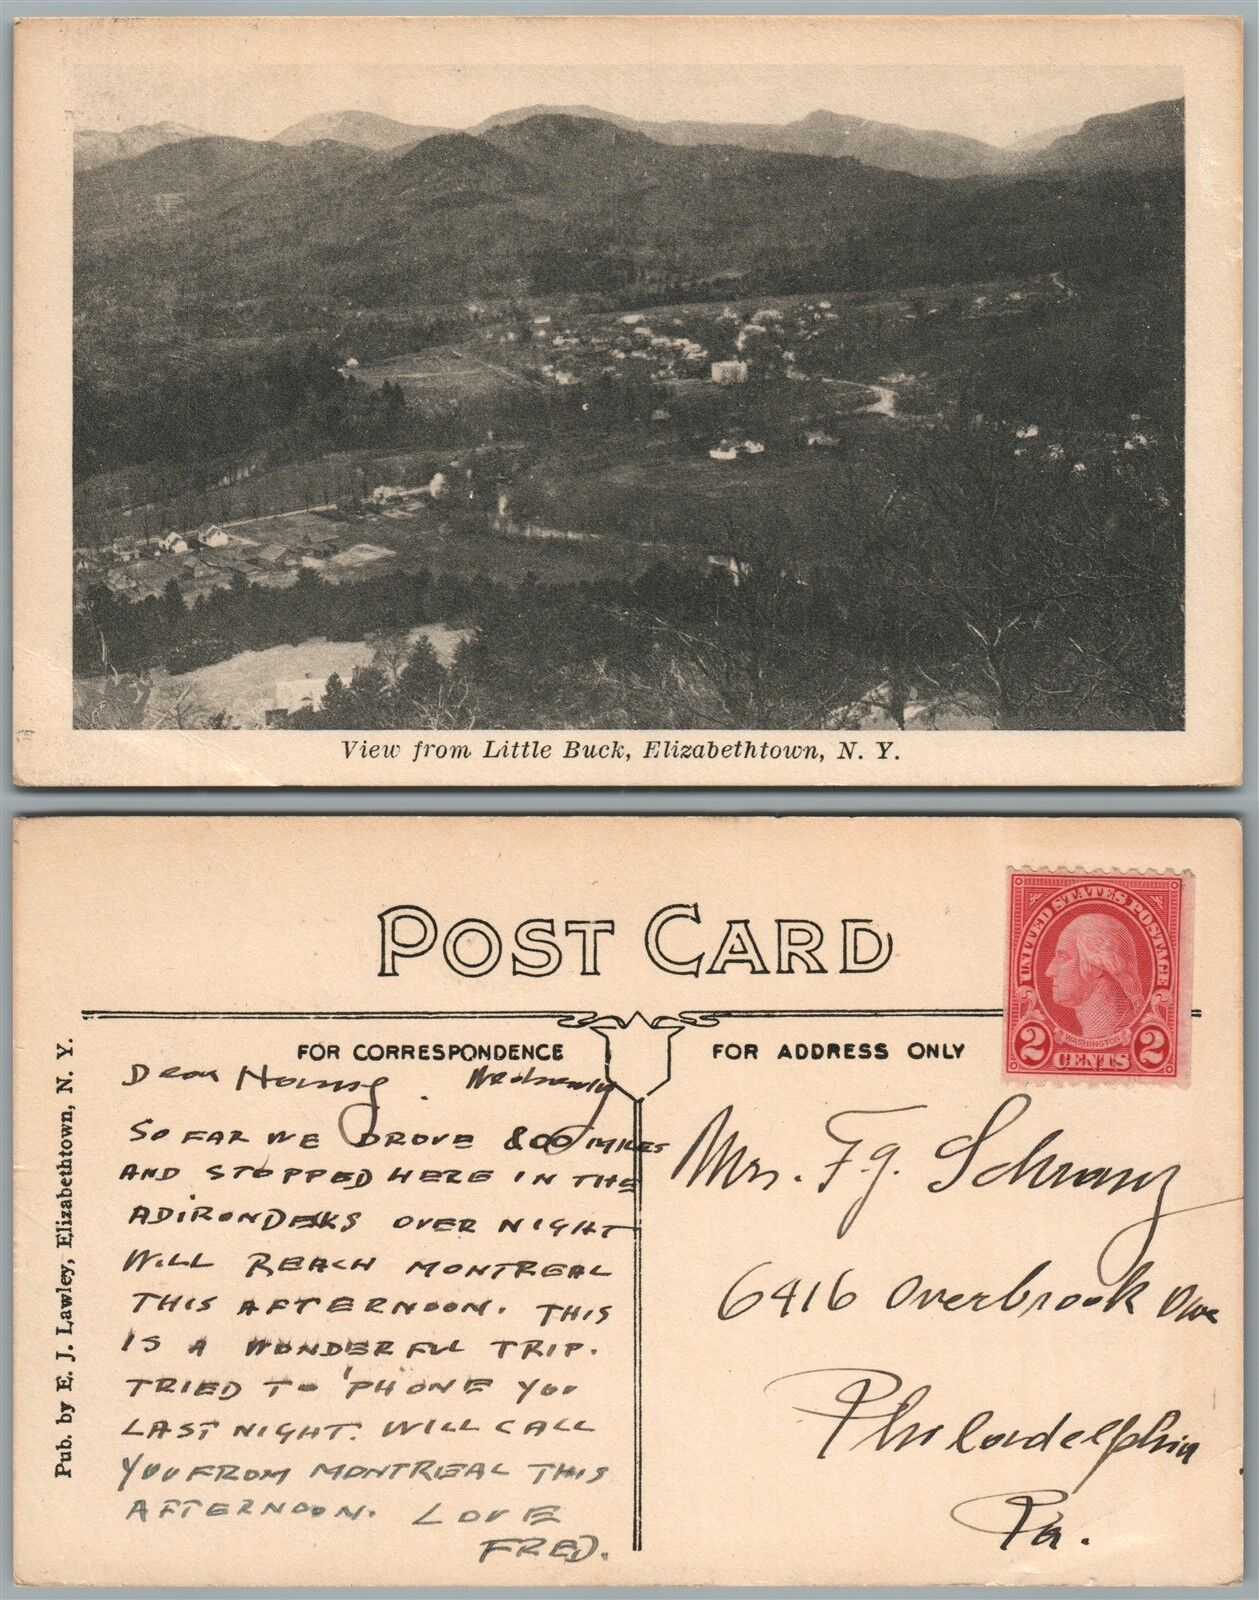 View from Little Buck, Elizabethtown, N. Y.
POST CARD
UNITED STATES POSTAGE
WASHINGTON
2 CENTS 2
FOR CORRESPONDENCE
FOR ADDRESS ONLY
Pub. by E. J. Lawley, Elizabethtown, N. Y.
Dear Wednesday
SO FAR WE DROVE 800 MILES
AND STOPPED HERE IN THE
ADIRONDEKS OVER NIGHT
WILL REACH MONTREAL
THIS AFTERNOON. THIS
IS A WONDERFUL TRIP.
TRIED TO 'PHONE YOU
LAST NIGHT. WILL CALL
YOU FROM MONTREAL THIS
AFTERNOON. LOVE
FRED.
Mrs. F. G. Schwarz
6416 Overbrook Ave
Philadelphia
Pa.